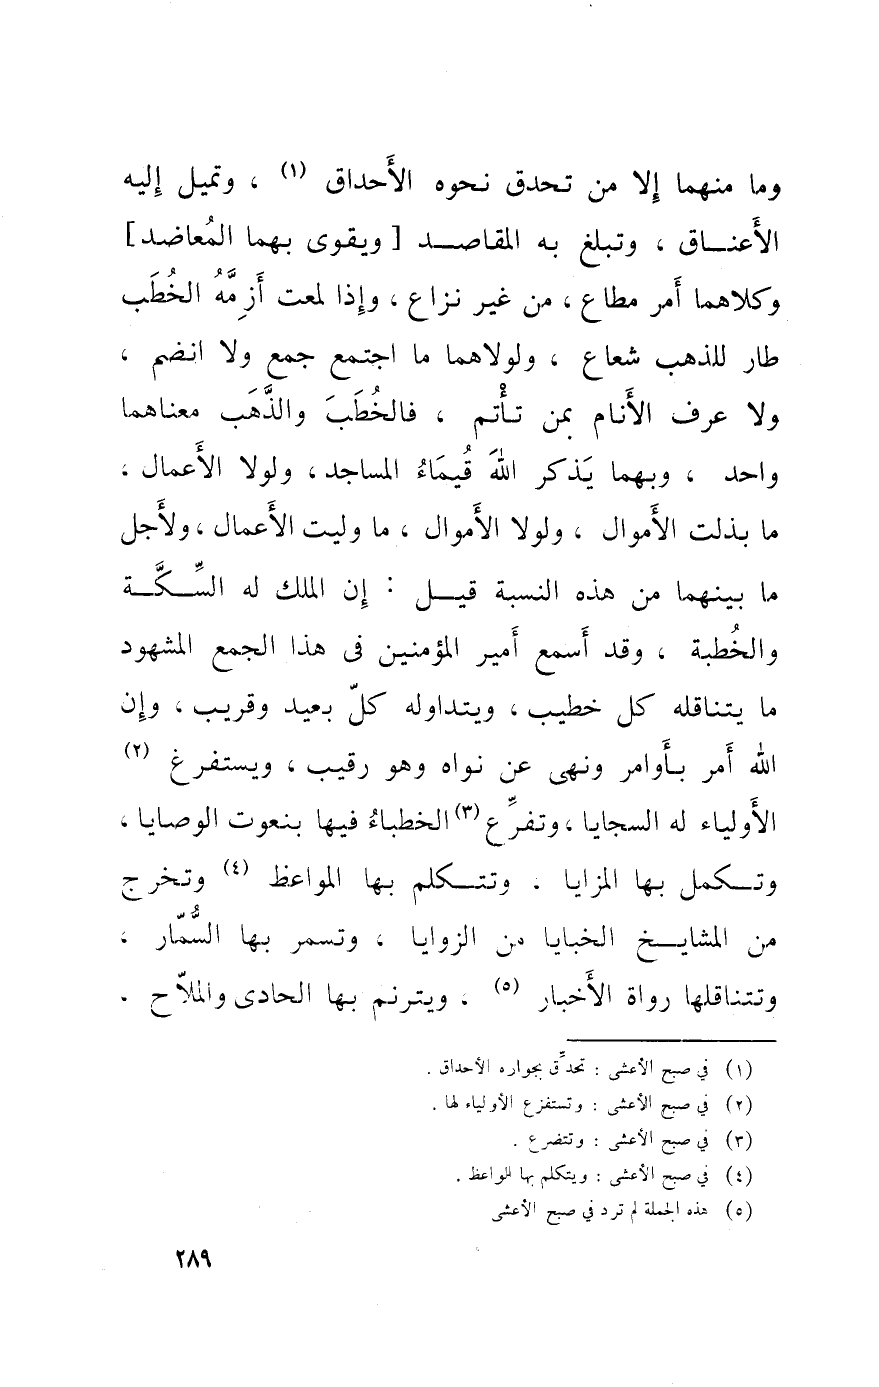 وما منهما إلا من تحدق نحوه الأَحداق (١) ، وتميل إليه
الأَعنــاق ، وتبلغ به المقاصــد [ ويقوى بهما المُعاضد ]
وكلاهما أَمر مطاع ، من غير نزاع ، وإذا لمعت أَزِمَّةُ الخُطَب
طار للذهب شعاع ، ولولاهما ما اجتمع جمع ولا انضم ،
ولا عرف الأَنام بمن تأْتم ، فالخُطَبَ والذَّهَب معناهما
واحد ، وبهما يَذكر اللهَ قُيمَاءُ المساجد ، ولولا الأَعمال ،
ما بذلت الأَموال ، ولولا الأَموال ، ما وليت الأَعمال ، ولأَجل
ما بينهما من هذه النسبة قيــل : إن الملك له السِّــكَّــة
والخُطبة ، وقد أَسمع أَمير المؤمنين فى هذا الجمع المشهود
ما يتناقله كل خطيب ، ويتداوله كلّ بعيد وقريب ، وإن
الله أَمر بأَوامر ونهى عن نواه وهو رقيب ، ويستفرغ (٢)
الأَولياء له السجايا ، وتفرِّع (٣) الخطباءُ فيها بنعوت الوصايا ،
وتــكمل بها المزايا . وتتــكلم بها المواعظ (٤) وتخرج
من المشايــخ الخبايا من الزوايا ، وتسمر بها السُّمّار ،
وتتناقلها رواة الأَخبار (٥) ، ويترنم بها الحادى والملاّح .
(١) في صبح الأعشى : تحدِّق بجواره الأحداق .
(٢) في صبح الأعشى : وتستفزع الأولياء لها .
(٣) في صبح الأعشى : وتتضرع .
(٤) في صبح الأعشى : ويتكلم بها الواعظ .
(٥) هذه الجملة لم ترد في صبح الأعشى
٢٨٩